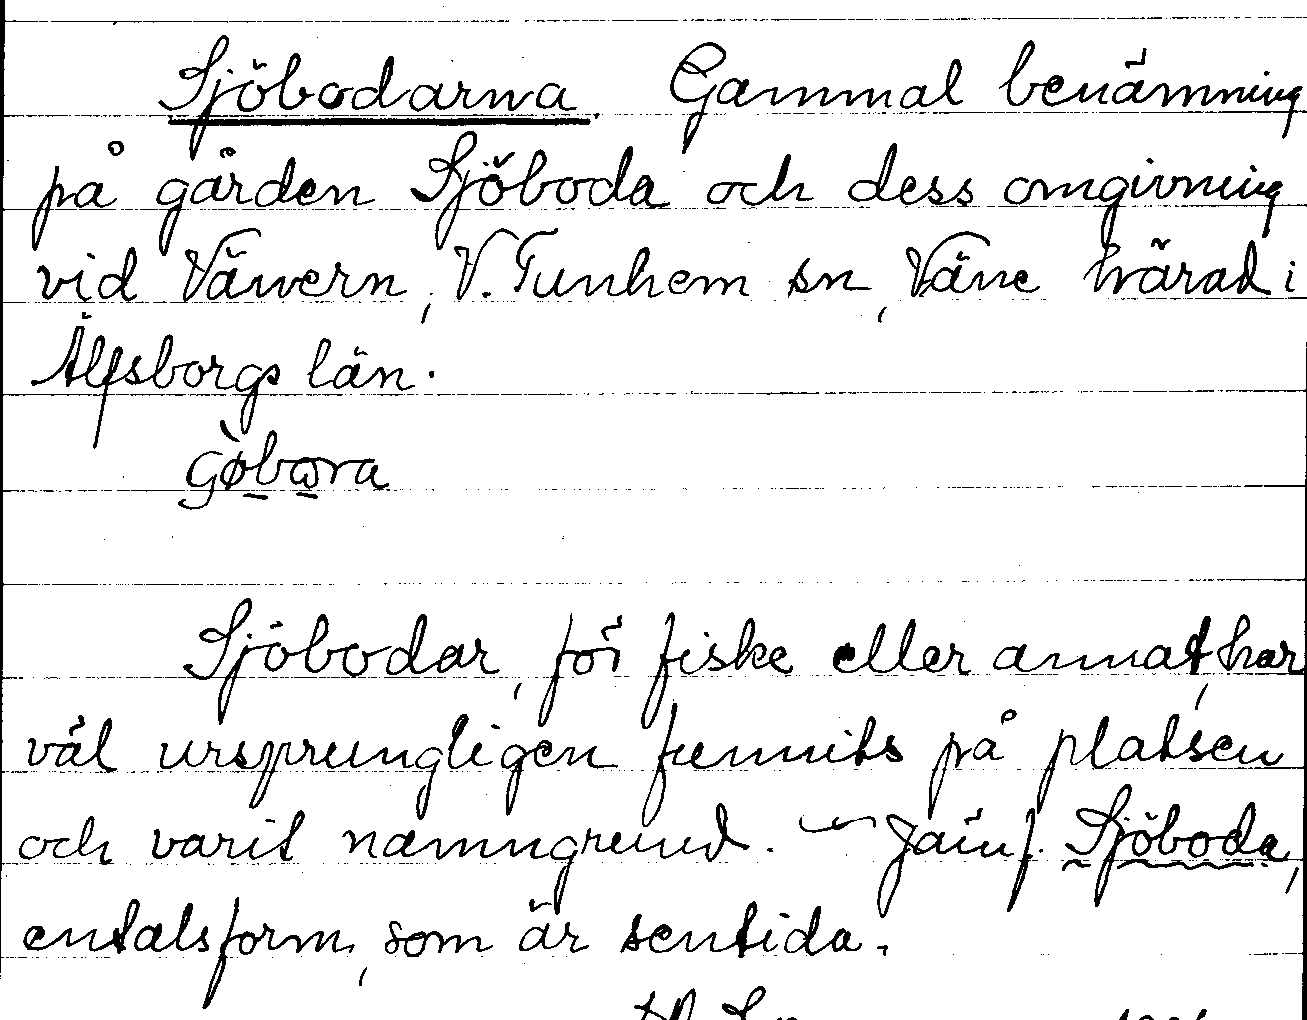 Sjöbodarna. Gammal benämning
på gården Sjöboda och dess omgivning
vid Vänern, V. Tunhem sn, Väne härad i
Älfsborgs län.
Sjöbodar, för fiske eller annat, har
väl ursprungligen funnits på platsen
och varit namngrund. — Jämf. Sjöboda,
entalsform, som är sentida.